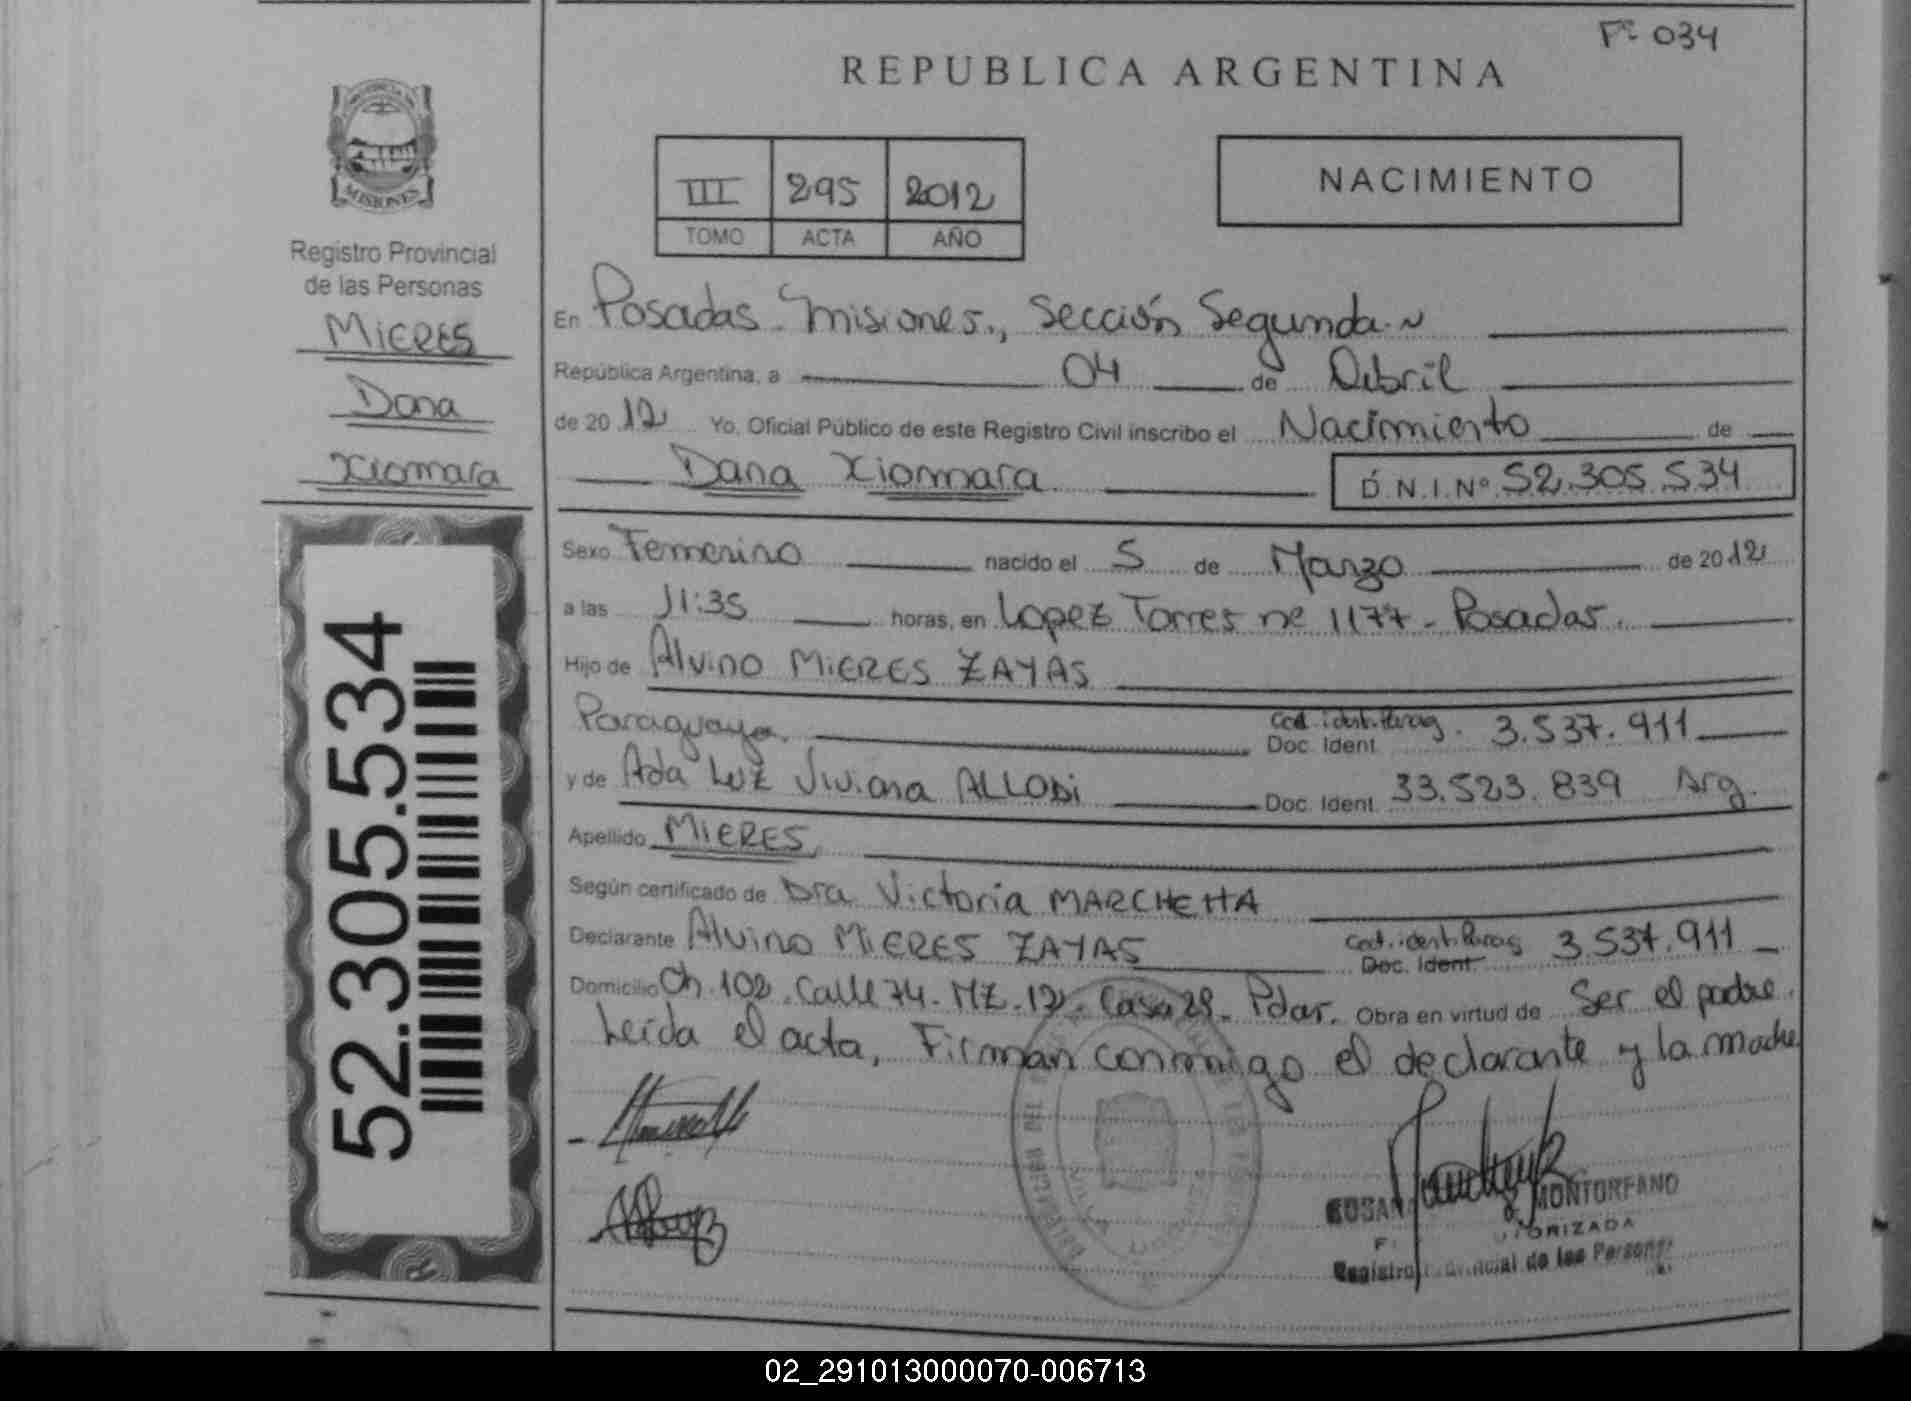 Fº 034
REPUBLICA ARGENTINA
MISIONES
Registro Provincial
de las Personas
MIERES
Dana
Xiomara
III 295 2012
TOMO ACTA AÑO
NACIMIENTO
En Posadas - Misiones., Sección Segunda.~
República Argentina, a 04 de Abril
de 2012 Yo, Oficial Público de este Registro Civil inscribo el Nacimiento de
Dana Xiomara D.N.I.Nº 52.305.534
Sexo Femenino nacido el 5 de Marzo de 2012
a las 11:35 horas, en Lopez Torres nº 1177 - Posadas.
Hijo de Alvino MIERES ZAYAS
Paraguayo. Ced. ident. Parag. Doc. Ident. 3.537.911
y de Ada Luz Viviana ALLODI Doc. Ident. 33.523.839 Arg.
Apellido MIERES
Según certificado de Dra Victoria MARCHETTA
Declarante Alvino MIERES ZAYAS Ced. ident. Parag Doc. Ident. 3.537.911
Domicilio Ch. 102. Calle 74. MZ. 12. Casa 28. Pdas. Obra en virtud de Ser el padre.
Leída el acta, Firman conmigo el declarante y la madre
MONTORFANO
Registro Provincial de las Personas
52.305.534
02_291013000070-006713